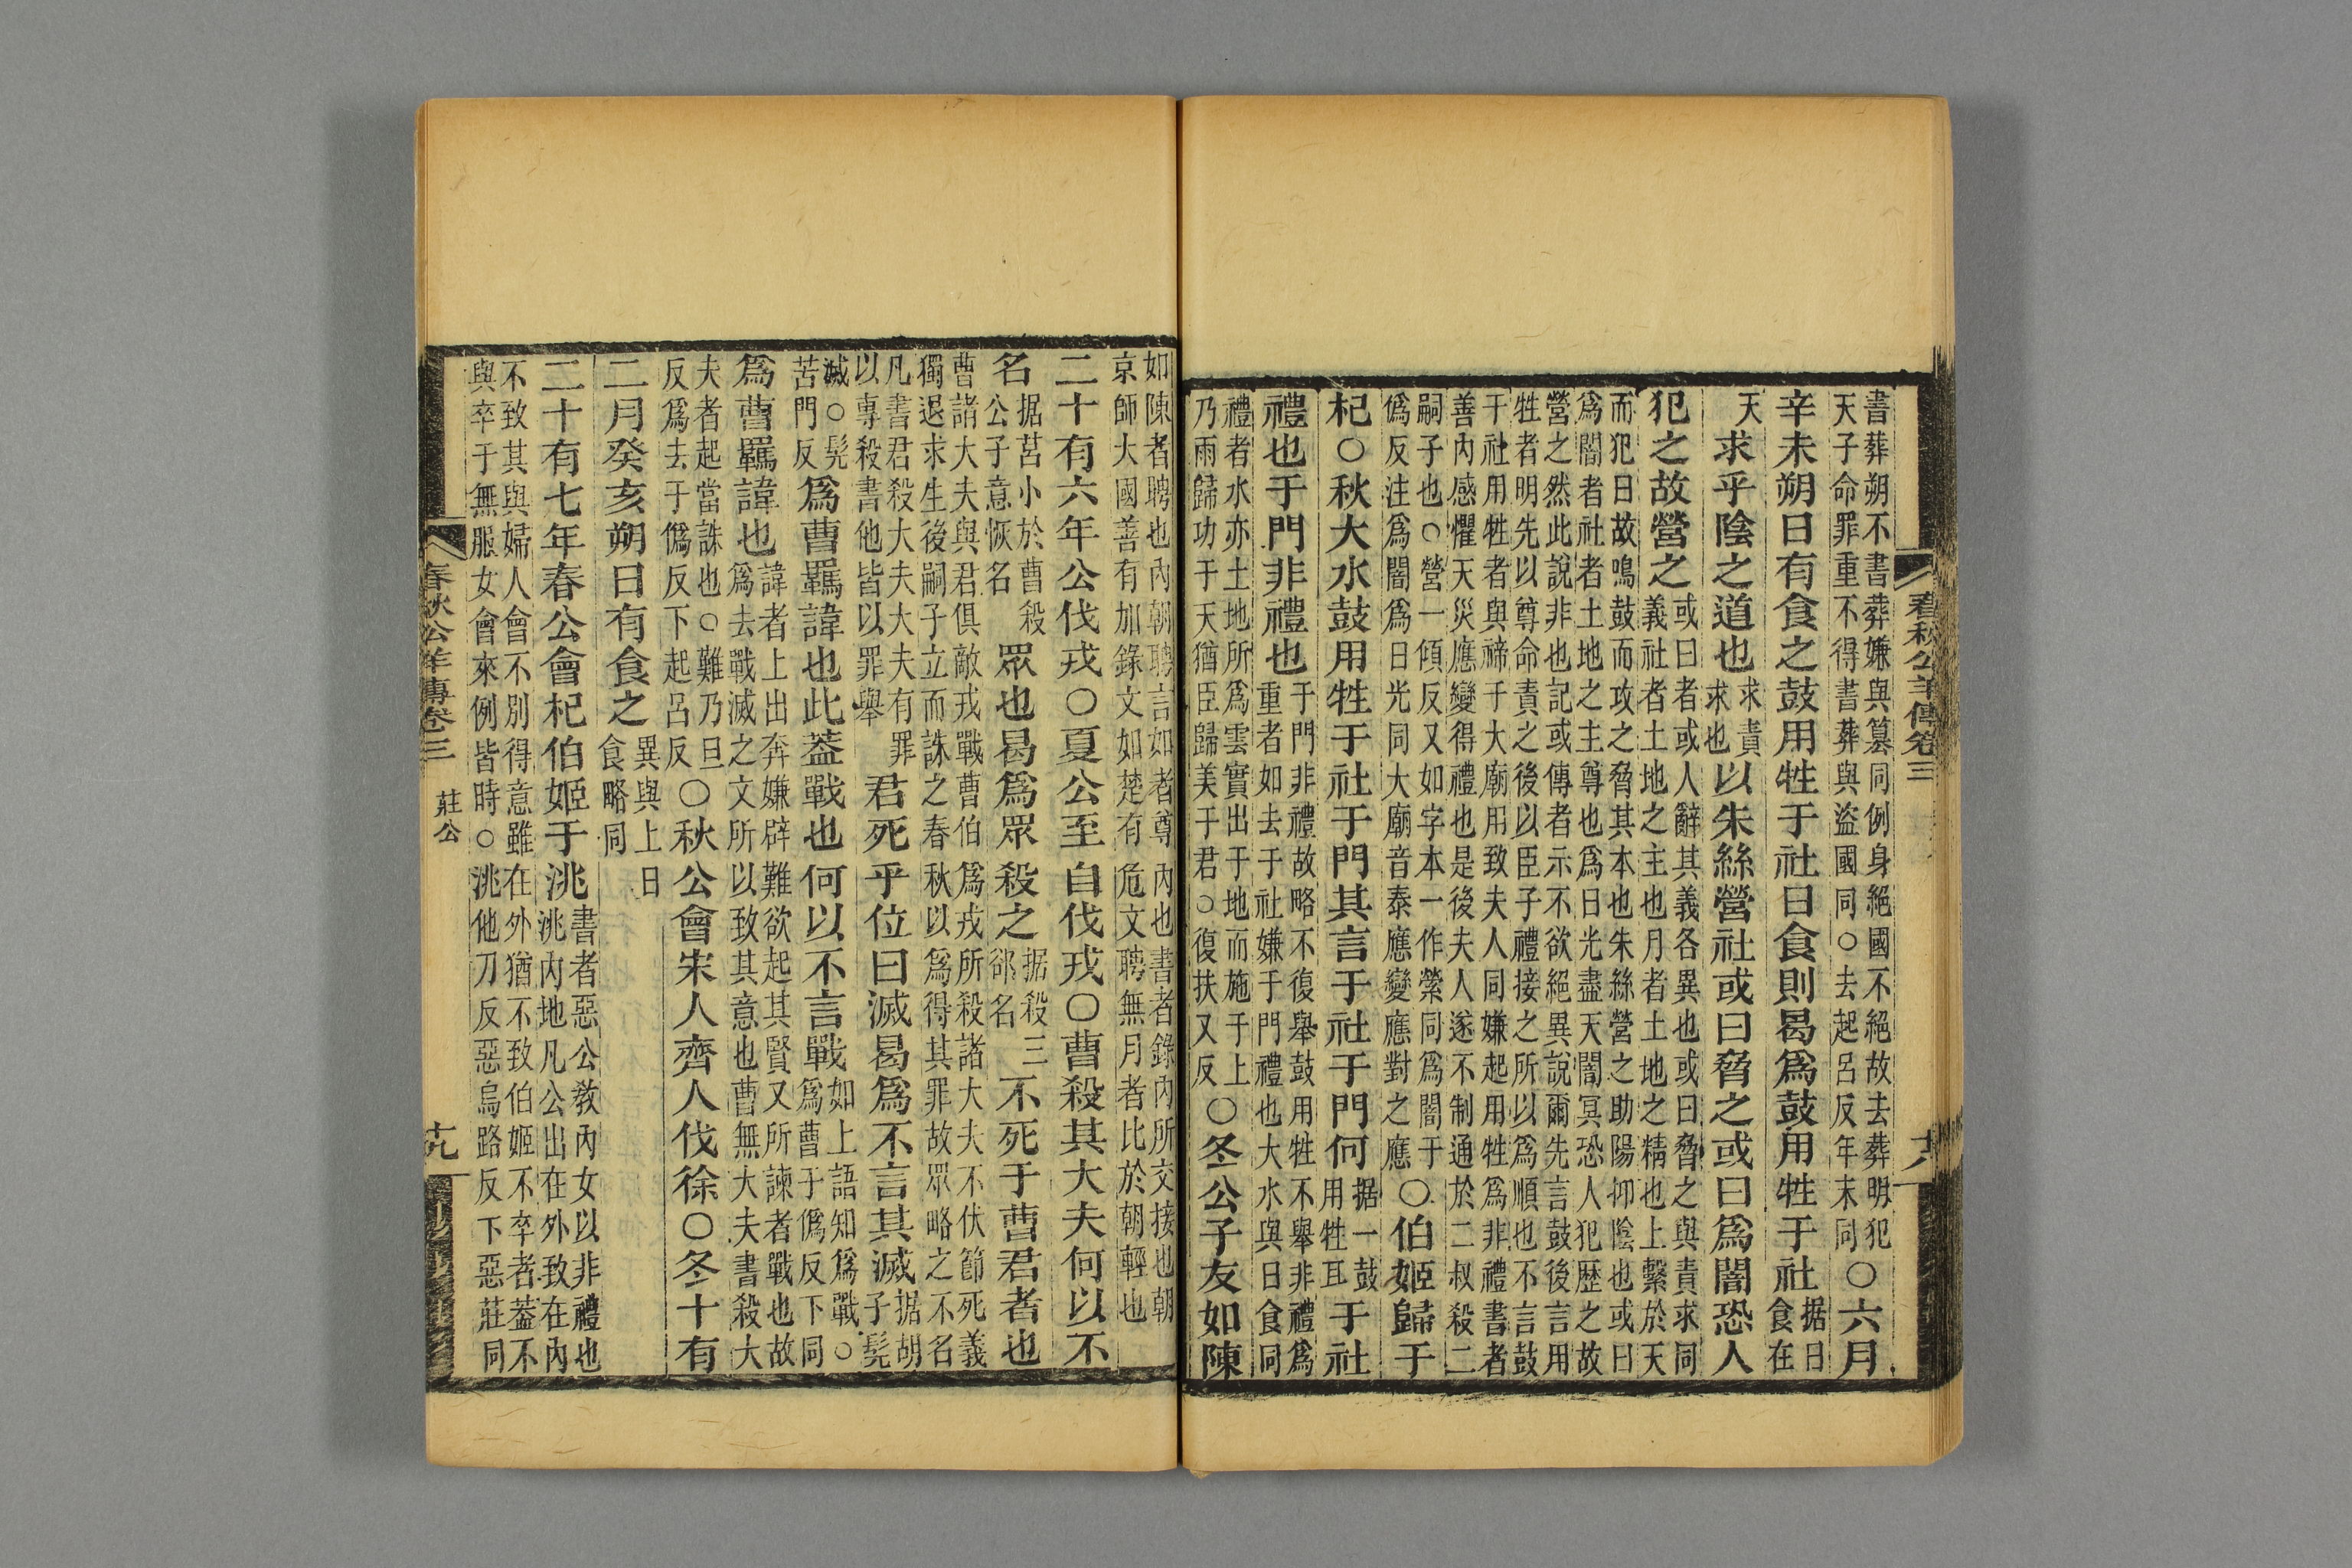 書葬朔不書葬嫌與篡同例身絕國不絕故去葬明犯
天子命罪重不得書葬與盜國同○去起呂反年末同○六月
辛未朔日有食之鼓用牲于社日食則曷爲鼓用牲于社据日食在
天求乎陰之道也求責求也以朱絲營社或曰脅之或曰爲闇恐人
犯之故營之或曰者或人辭其義各異也或曰脅之與責求同
義社者土地之主也月者土地之精也上繫於天
而犯日故鳴鼓而攻之脅其本也朱絲營之助陽抑陰也或曰
爲闇者社者土地之主尊也爲日光盡天闇冥恐人犯歷之故
營之然此說非也記或傳者示不欲絕異說爾先言鼓後言用
牲者明先以尊命責之後以臣子禮接之所以爲順也不言鼓
于社用牲者與禘于大廟用致夫人同嫌起用牲爲非禮書者
善內感懼天災應變得禮也是後夫人遂不制通於二叔殺二
嗣子也○營一傾反又如字本一作縈同爲闇于
僞反注爲闇爲日光同大廟音泰應變應對之應○伯姬歸于
杞○秋大水鼓用牲于社于門其言于社于門何据一鼓用牲耳于社
禮也于門非禮也于門非禮故略不復舉鼓用牲不舉非禮爲
重者如去于社嫌于門禮也大水與日食同
禮者水亦土地所爲雲實出于地而施于上
乃雨歸功于天猶臣歸美于君○復扶又反○冬公子友如陳
春秋公羊傳卷三
六
如陳者聘也內朝聘言如者尊內也書者錄內所交接也朝
京師大國善有加錄文如楚有危文聘無月者比於朝輕也
二十有六年公伐戎○夏公至自伐戎○曹殺其大夫何以不
名据莒小於曹殺公子意恢名眾也曷爲眾殺之据殺三郤名不死于曹君者也
曹諸大夫與君俱敵戎戰曹伯爲戎所殺諸大夫不伏節死義
獨退求生後嗣子立而誅之春秋以爲得其罪故眾略之不名
凡書君殺大夫大夫有罪
以專殺書他皆以罪舉君死乎位曰滅曷爲不言其滅据胡子髡
滅○髡
苦門反爲曹羈諱也此蓋戰也何以不言戰如上語知爲戰○
爲曹于僞反下同
爲曹羈諱也諱者上出奔嫌辟難欲起其賢又所諫者戰也故
爲去戰滅之文所以致其意也曹無大夫書殺大
夫者起當誅也○難乃旦
反爲去于僞反下起呂反○秋公會宋人齊人伐徐○冬十有
二月癸亥朔日有食之異與上日食略同
二十有七年春公會杞伯姬于洮書者惡公教內女以非禮也
洮內地凡公出在外致在內
不致其與婦人會不別得意雖在外猶不致伯姬不卒者蓋不
與卒于無服女會來例皆時○洮他刀反惡烏路反下惡莊同
春秋公羊傳卷三
莊公
九